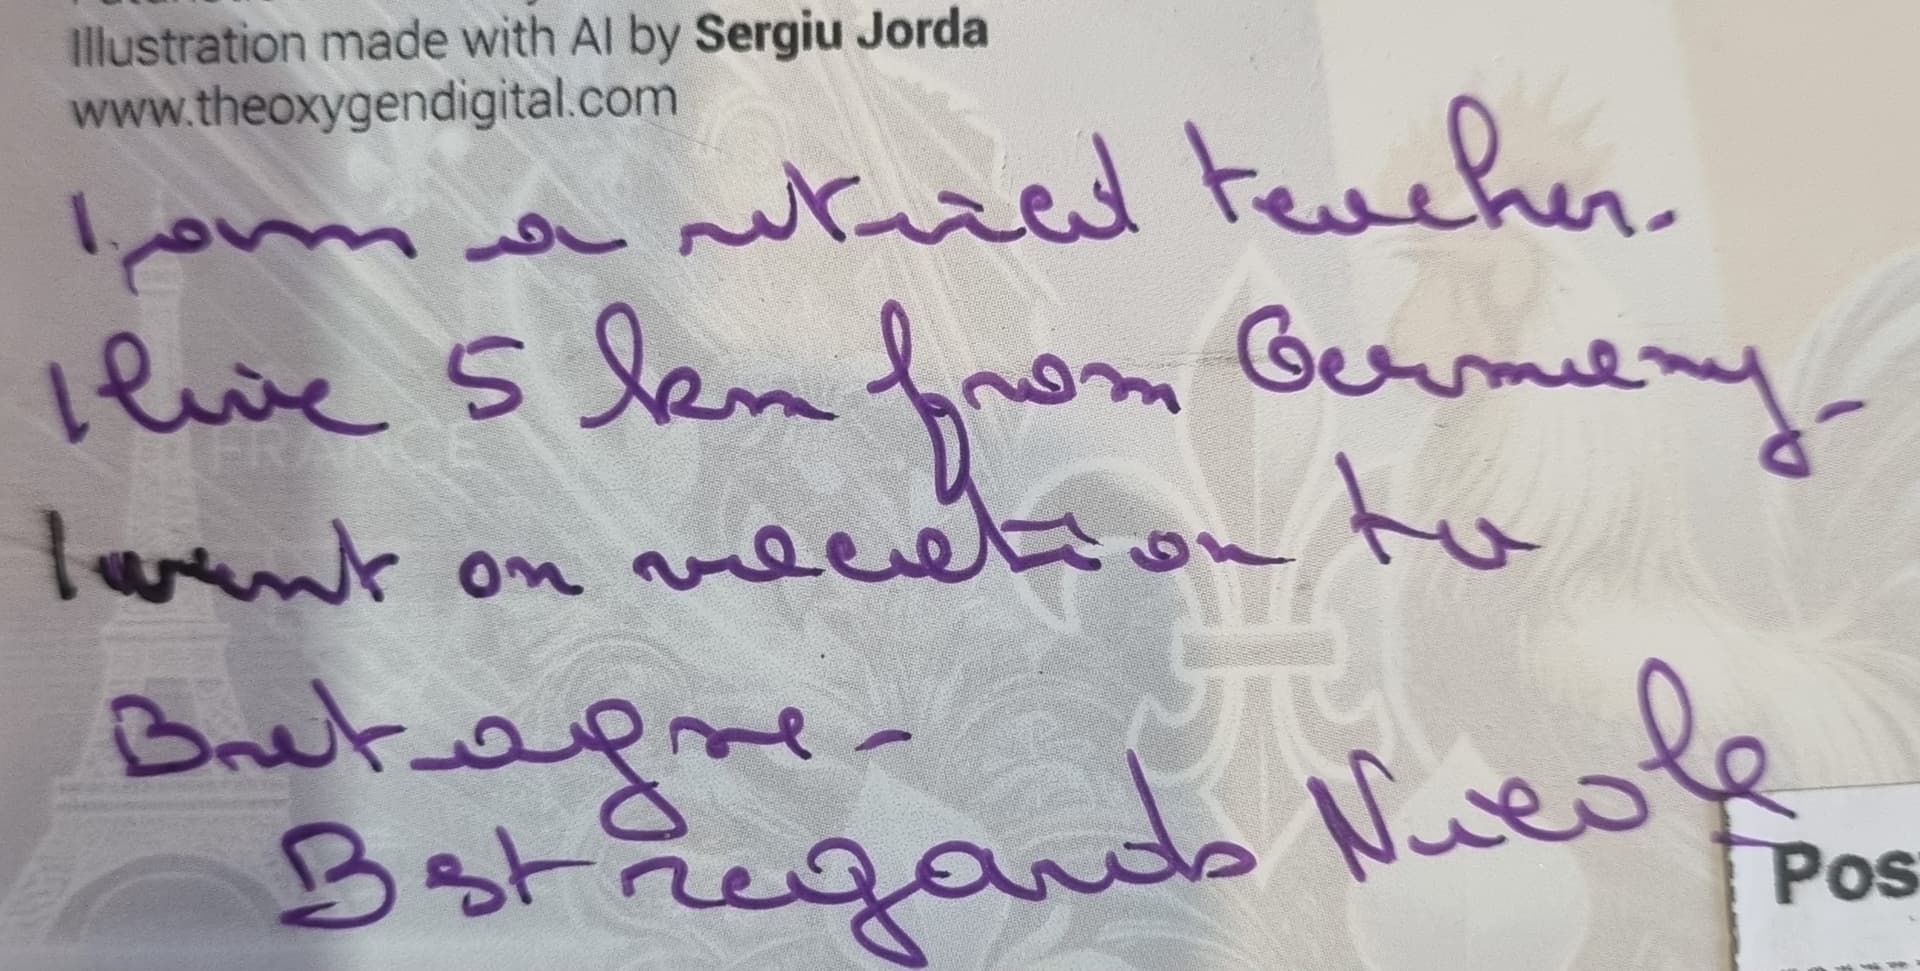 Illustration made with AI by Sergiu Jorda
www.theoxygendigital.com
I am a retired teacher.
I live 5 km from Germany-
I went on vacation to
Bretagne-
Bst regards Nicole
FRANCE
Pos